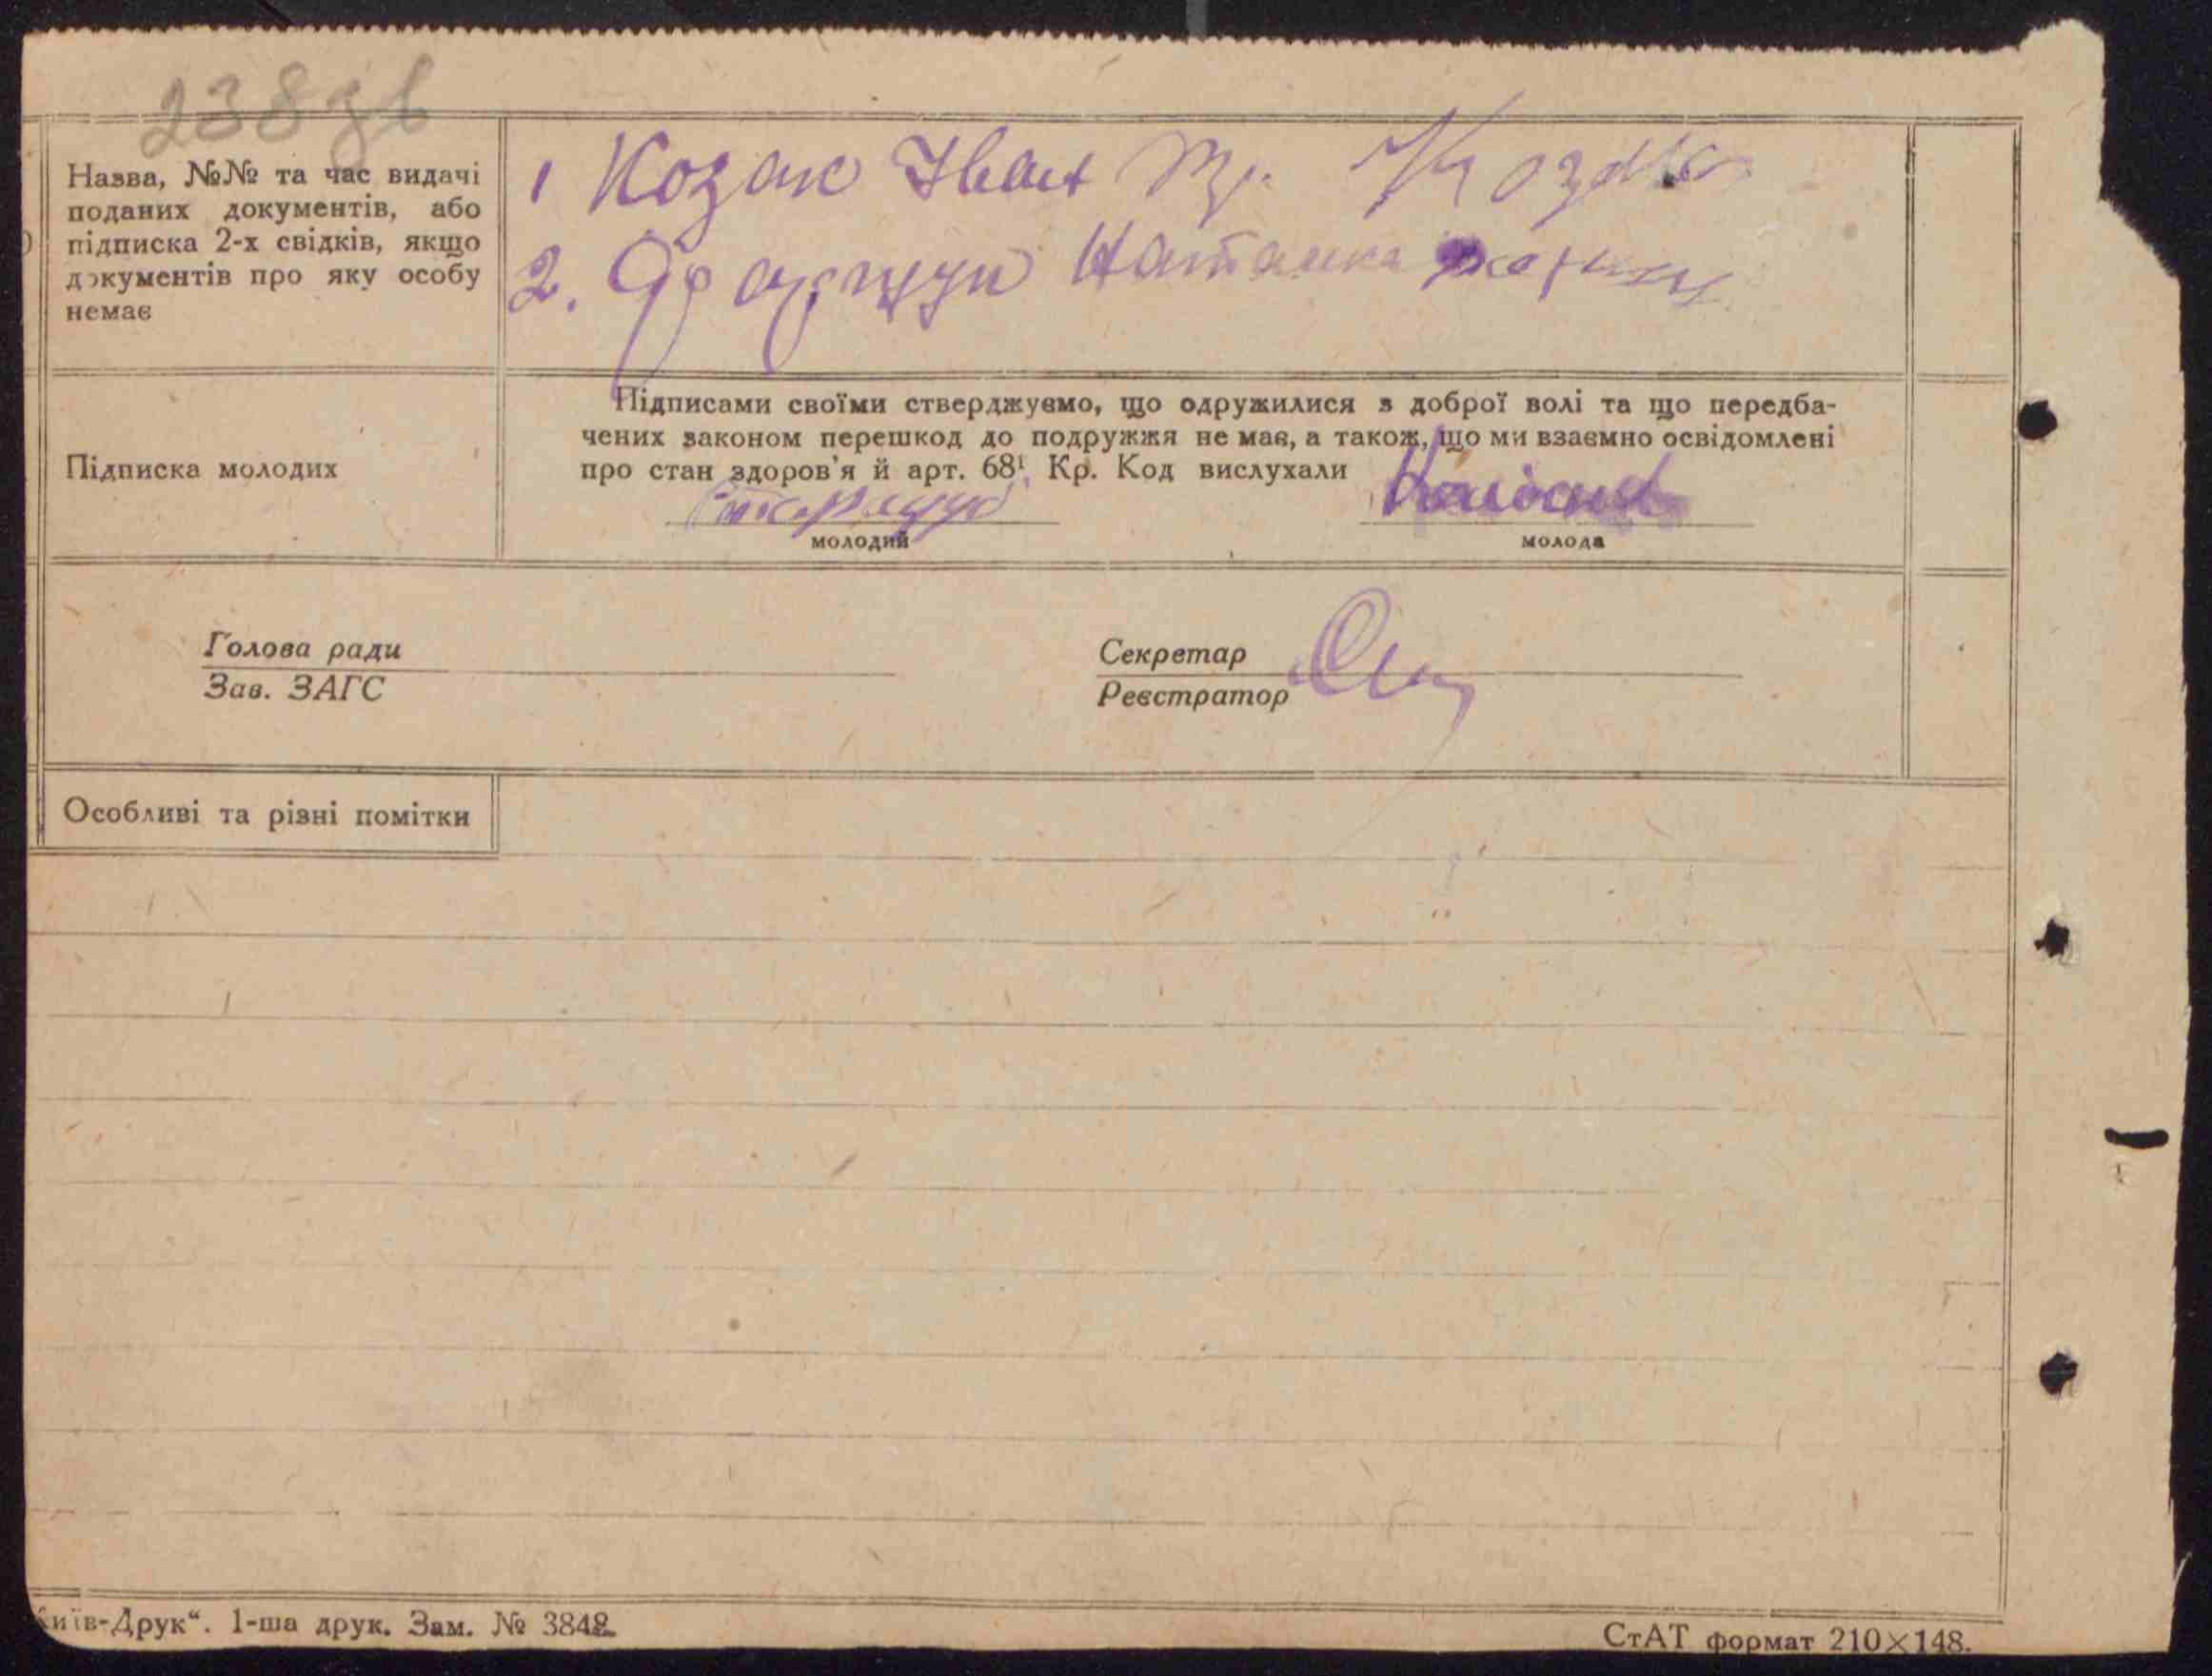 238зв
Назва, №№ та час видачі
поданих документів, або
підписка 2-х свідків, якщо
документів про яку особу
немає
1 Козак Іван Гр. Козак
2. Наталка
Підписами своїми стверджуємо, що одружилися з доброї волі та що передба-
чених законом перешкод до подружжя не має, а також, що ми взаємно освідомлені
про стан здоров'я й арт. 68¹ Кр. Код вислухали
Підписка молодих
молодий
молода
Голова ради
Зав. ЗАГС
Секретар
Реєстратор
Особливі та різні помітки
Київ-Друк“. 1-ша друк. Зам. № 3842
СтАТ формат 210×148.